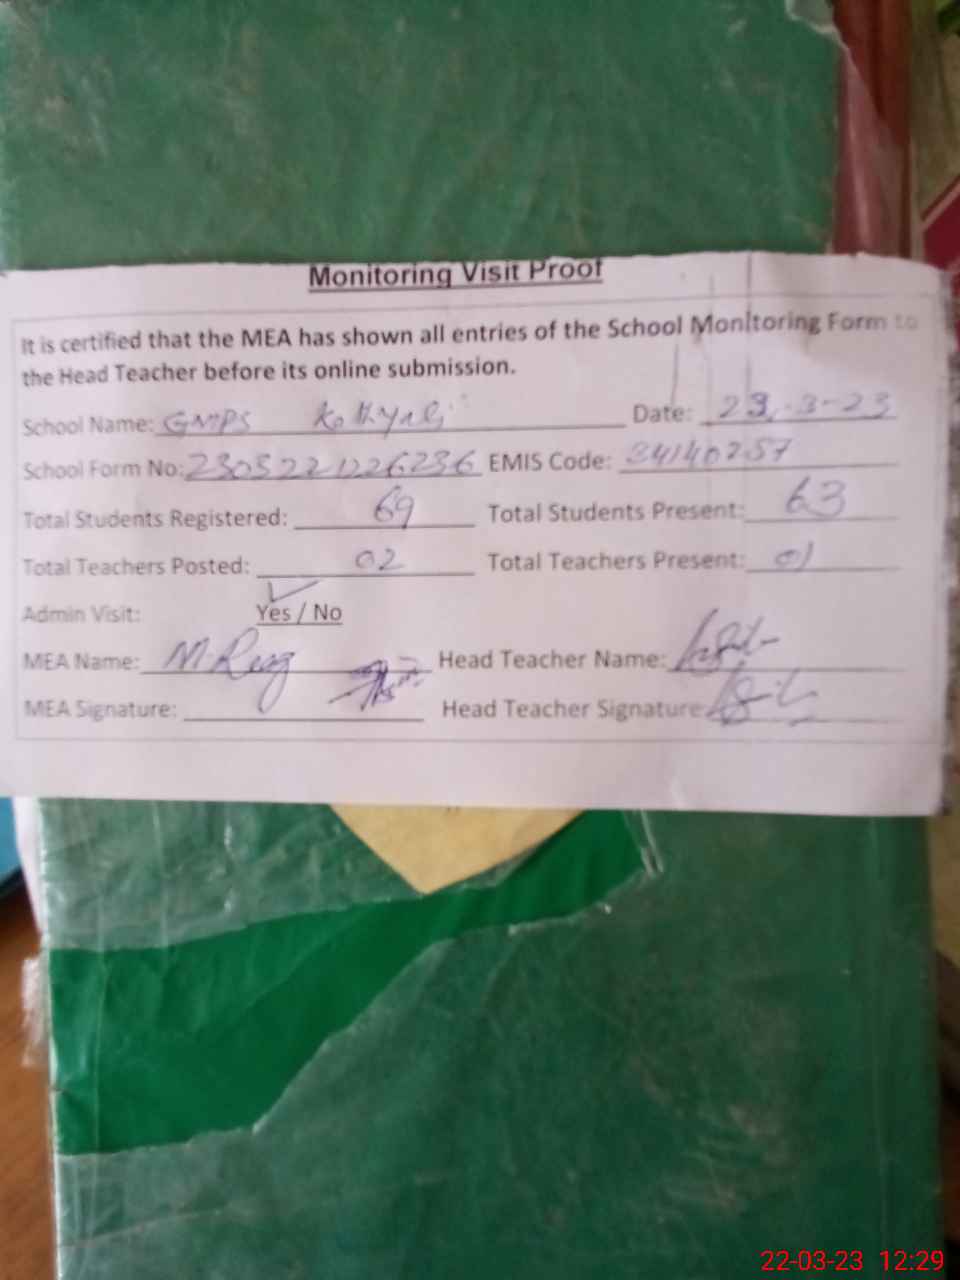 Monitoring Visit Proof
It is certified that the MEA has shown all entries of the School Monitoring Form to
the Head Teacher before its online submission.
School Name: GMPS Date: -3-23
School Form No: EMIS Code: 34140257
Total Students Registered: 69 Total Students Present: 63
Total Teachers Posted: 02 Total Teachers Present: 01
Admin Visit: Yes / No
MEA Name: Head Teacher Name:
MEA Signature: Head Teacher Signature
22-03-23 12:29